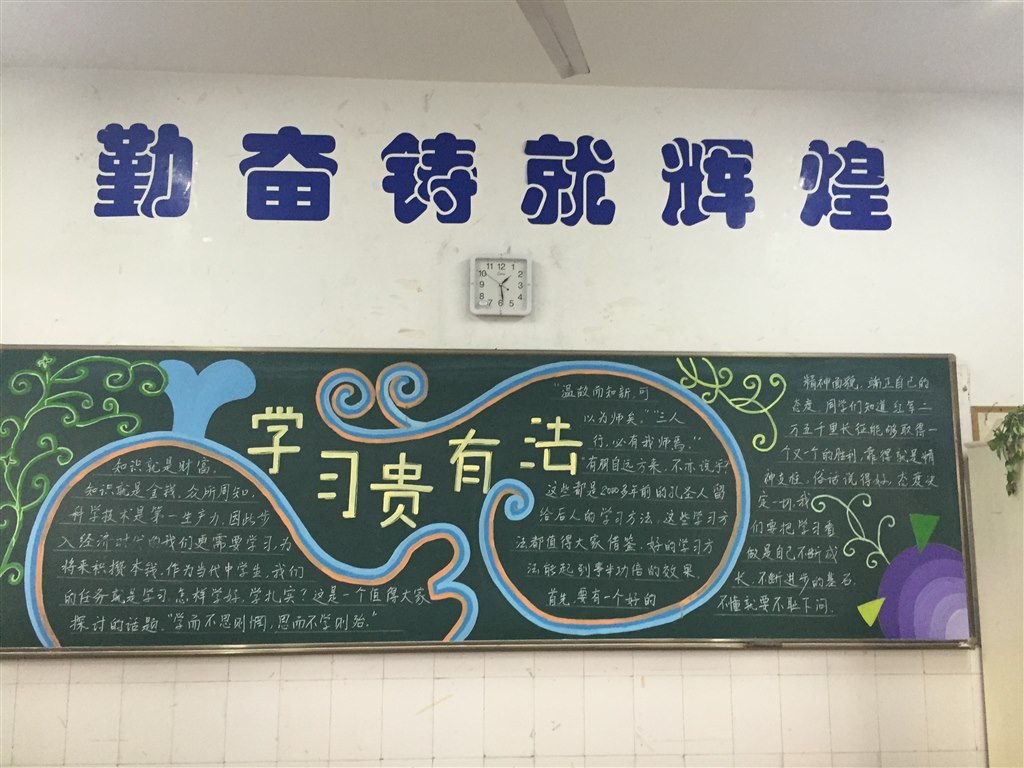 勤奋铸就辉煌
11 12 1
10 2
9 3
8 4
7 6 5
学习贵有法
知识就是财富，
知识就是金钱，众所周知，
科学技术是第一生产力，因此步
入经济时代的我们更需要学习，为
将来积攒本钱，作为当代中学生，我们
的任务就是学习，怎样学好，学扎实？这是一个值得大家
探讨的话题。“学而不思则惘，思而不学则殆。”
“温故而知新，可
以为师矣。”“三人
行，必有我师焉。”
“有朋自远方来，不亦说乎？”
这些都是2000多年前的孔圣人留
给后人的学习方法，这些学习方
法都值得大家借鉴，好的学习方
法能起到事半功倍的效果。
首先，要有一个好的
精神面貌，端正自己的
态度，同学们知道红军二
万五千里长征能够取得一
个又一个的胜利，靠得就是精
神支柱，俗话说得好，态度决
定一切，我
们要把学习看
做是自己不断成
长，不断进步的基石，
不懂就要不耻下问。